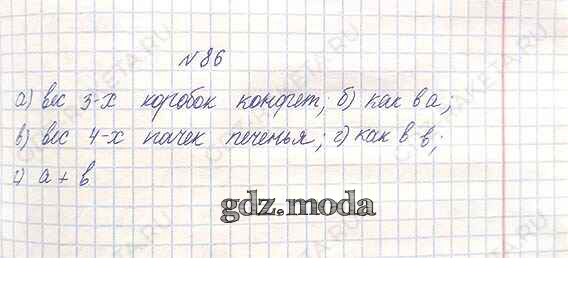 №86
а) вес 3-х коробок конфет; б) как в а;
в) вес 4-х пачек печенья; г) как в в;
а + в
gdz.moda